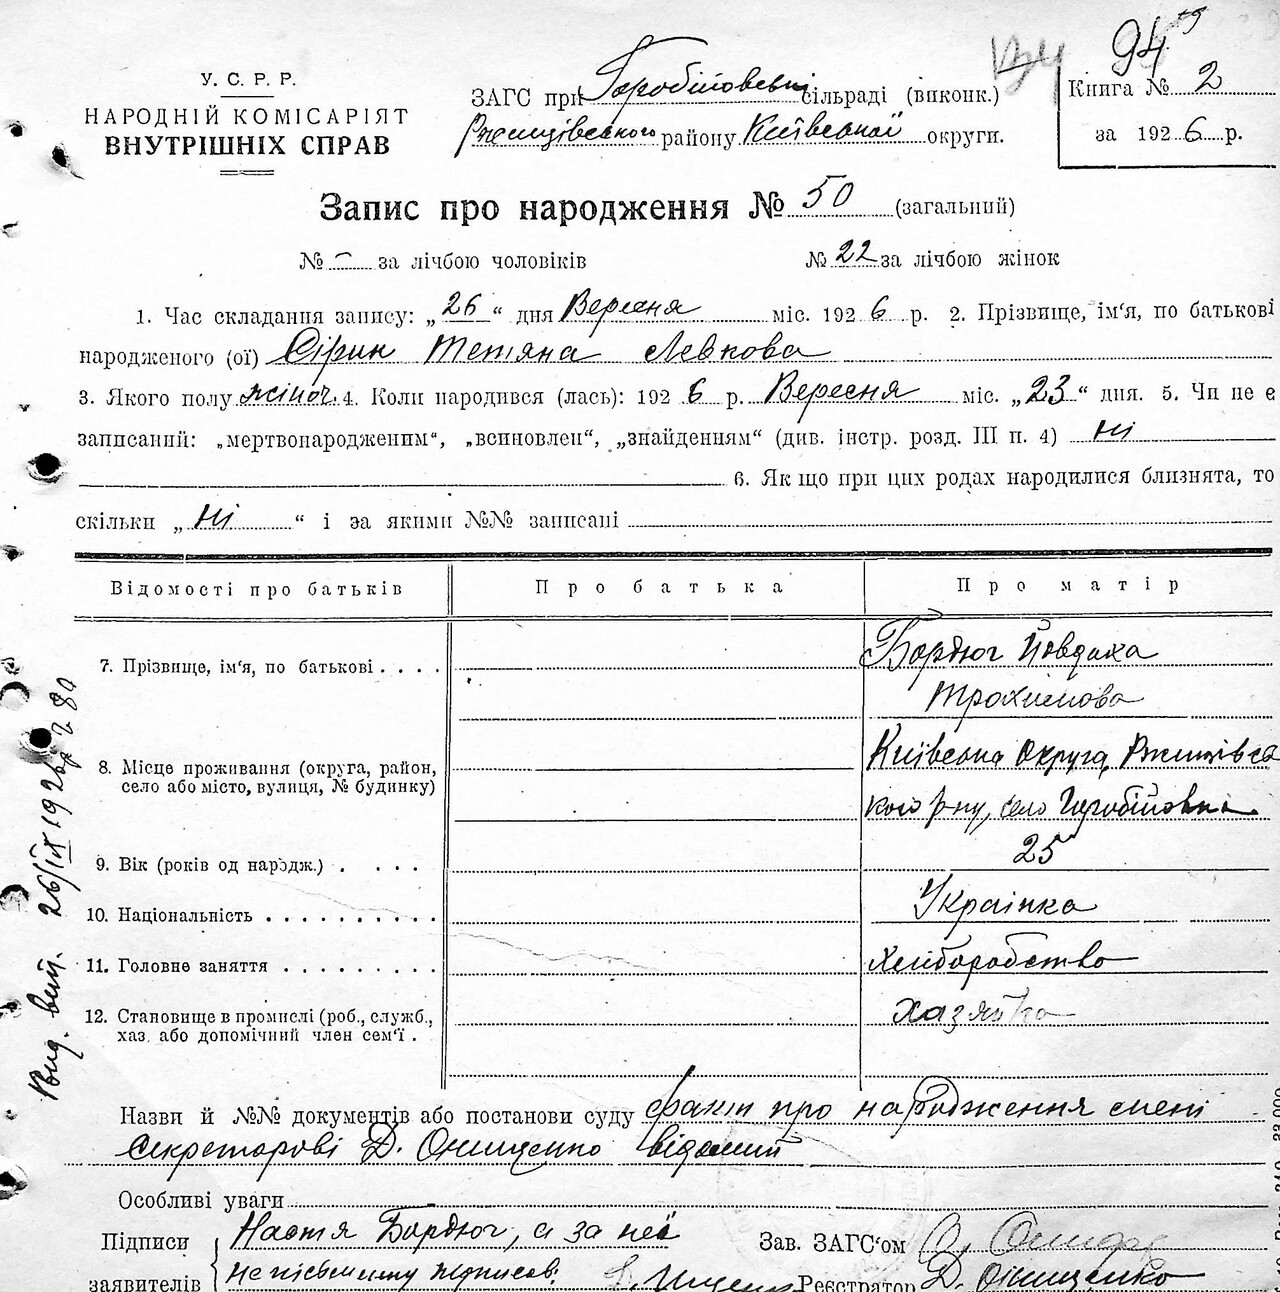 94
У. С. Р. Р.
НАРОДНІЙ КОМІСАРІЯТ
ВНУТРІШНІХ СПРАВ
ЗАГС при Горобіївській сільраді (виконк.)
Ржищівського району Київської округи.
Книга № 2
за 1926 р.
Запис про народження № 50 (загальний)
№ – за лічбою чоловіків № 22 за лічбою жінок
1. Час складання запису: „26“ дня Вересня міс. 1926 р. 2. Прізвище, ім'я, по батькові
народженого (ої) Сірик Тетяна Левкова
3. Якого полу жіноч. 4. Коли народився (лась): 1926 р. Вересня міс. „23“ дня. 5. Чи не є
записаний: „мертвонародженим“, „всиновлен“, „знайденням“ (див. інстр. розд. III п. 4) Ні
6. Як що при цих родах народилися близнята, то
скільки „ Ні “ і за якими №№ записані
Відомості про батьків Про батька Про матір
7. Прізвище, ім'я, по батькові . . . . Бордюг Йовдоха
Трохимова
8. Місце проживання (округа, район, село або місто, вулиця, № будинку) Київська Округа, Ржищівсь
кого р-ну, село Горобіївка
9. Вік (років од народж.) . . . . 25
10. Національність . . . . . . . . . Українка
11. Головне заняття . . . . . . . . . Хліборобство
12. Становище в промислі (роб., служб., хаз. або допомічний член сем'ї . Хазяйка
Назви й №№ документів або постанови суду факт про народження мені
секретарові Д. Онищенко відомий
Особливі уваги
Підписи заявителів Настя Бордюг, а за неї
неписьменну підписав:
Зав. ЗАГС'ом
Реєстратор Д. Онищенко
Вид. вит. 26/IX 1926 р.